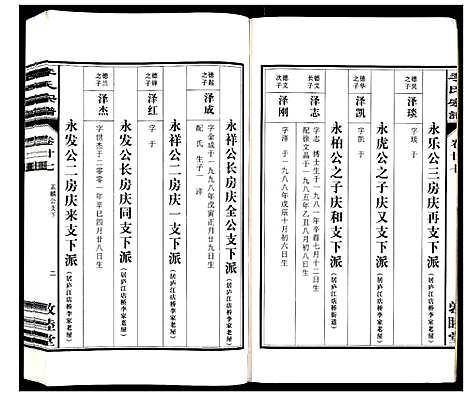 李氏宗谱
卷廿七
永乐公三房庆再支下派
(居庐江店桥李家老屋)
德昊之子
泽琰
字琰 于
永虎公之子庆又支下派
(居庐江店桥李家老屋)
德华之子
泽凯
字凯 于
永柏公之子庆和支下派
(居庐江店桥街道)
德文长子
泽志
字志 博士生于一九八一年辛酉七月十二日生
配徐文晶于一九八五年乙丑八月初六日生
德文次子
泽刚
字泽 于一九八八年戊辰十月初六日生
敦睦堂
李氏宗谱
卷廿七
孟麟公支下
二
永祥公长房庆全公支下派
(居庐江店桥李家老屋)
之子
泽成
字金成于一九九八年戊寅正月廿九日生
配 氏 生子一 洋
永祥公二房庆一支下派
(居庐江店桥李家老屋)
之子
泽红
字 于
永发公长房庆同支下派
(居庐江店桥李家老屋)
德兰之子
泽杰
字世杰于二〇〇一年辛巳四月廿八日生
永发公二房庆来支下派
(居庐江店桥李家老屋)
敦睦堂